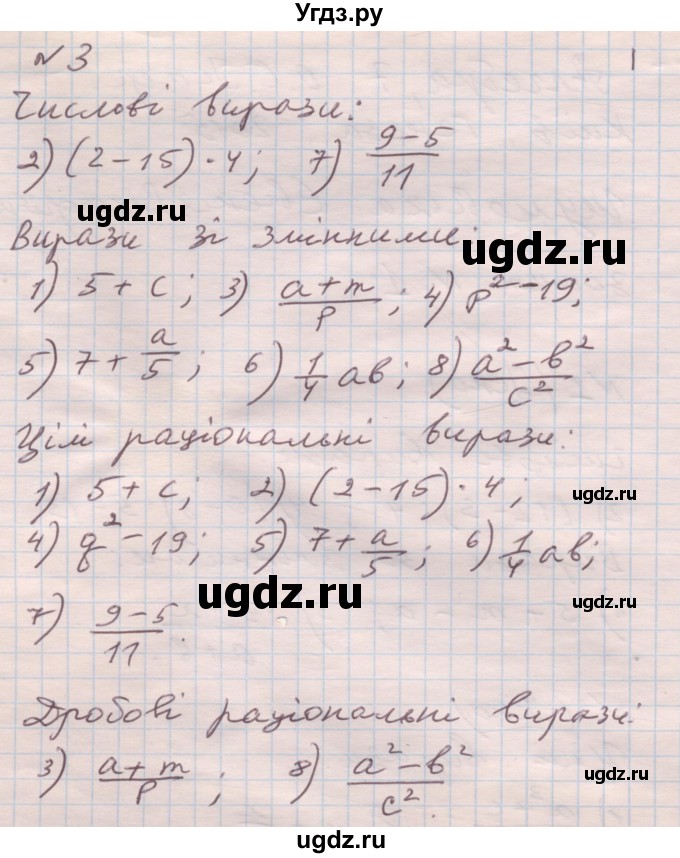 Угдз.ру
№3
1
Числові вирази:
2) (2-15)·4; 7) (9-5)/11
ugdz.ru
Вирази зі змінними:
ugdz.ru
1) 5+c; 3) (a+m)/p; 4) p²-19;
5) 7+a/5; 6) 1/4 ab; 8) (a²-b²)/c²
Цілі раціональні вирази:
1) 5+c; 2) (2-15)·4;
ugdz.ru
4) q²-19; 5) 7+a/5; 6) 1/4 ab;
ugdz.ru
ugdz.ru
7) (9-5)/11.
Дробові раціональні вирази:
3) (a+m)/p; 8) (a²-b²)/c².
ugdz.ru
ugdz.ru